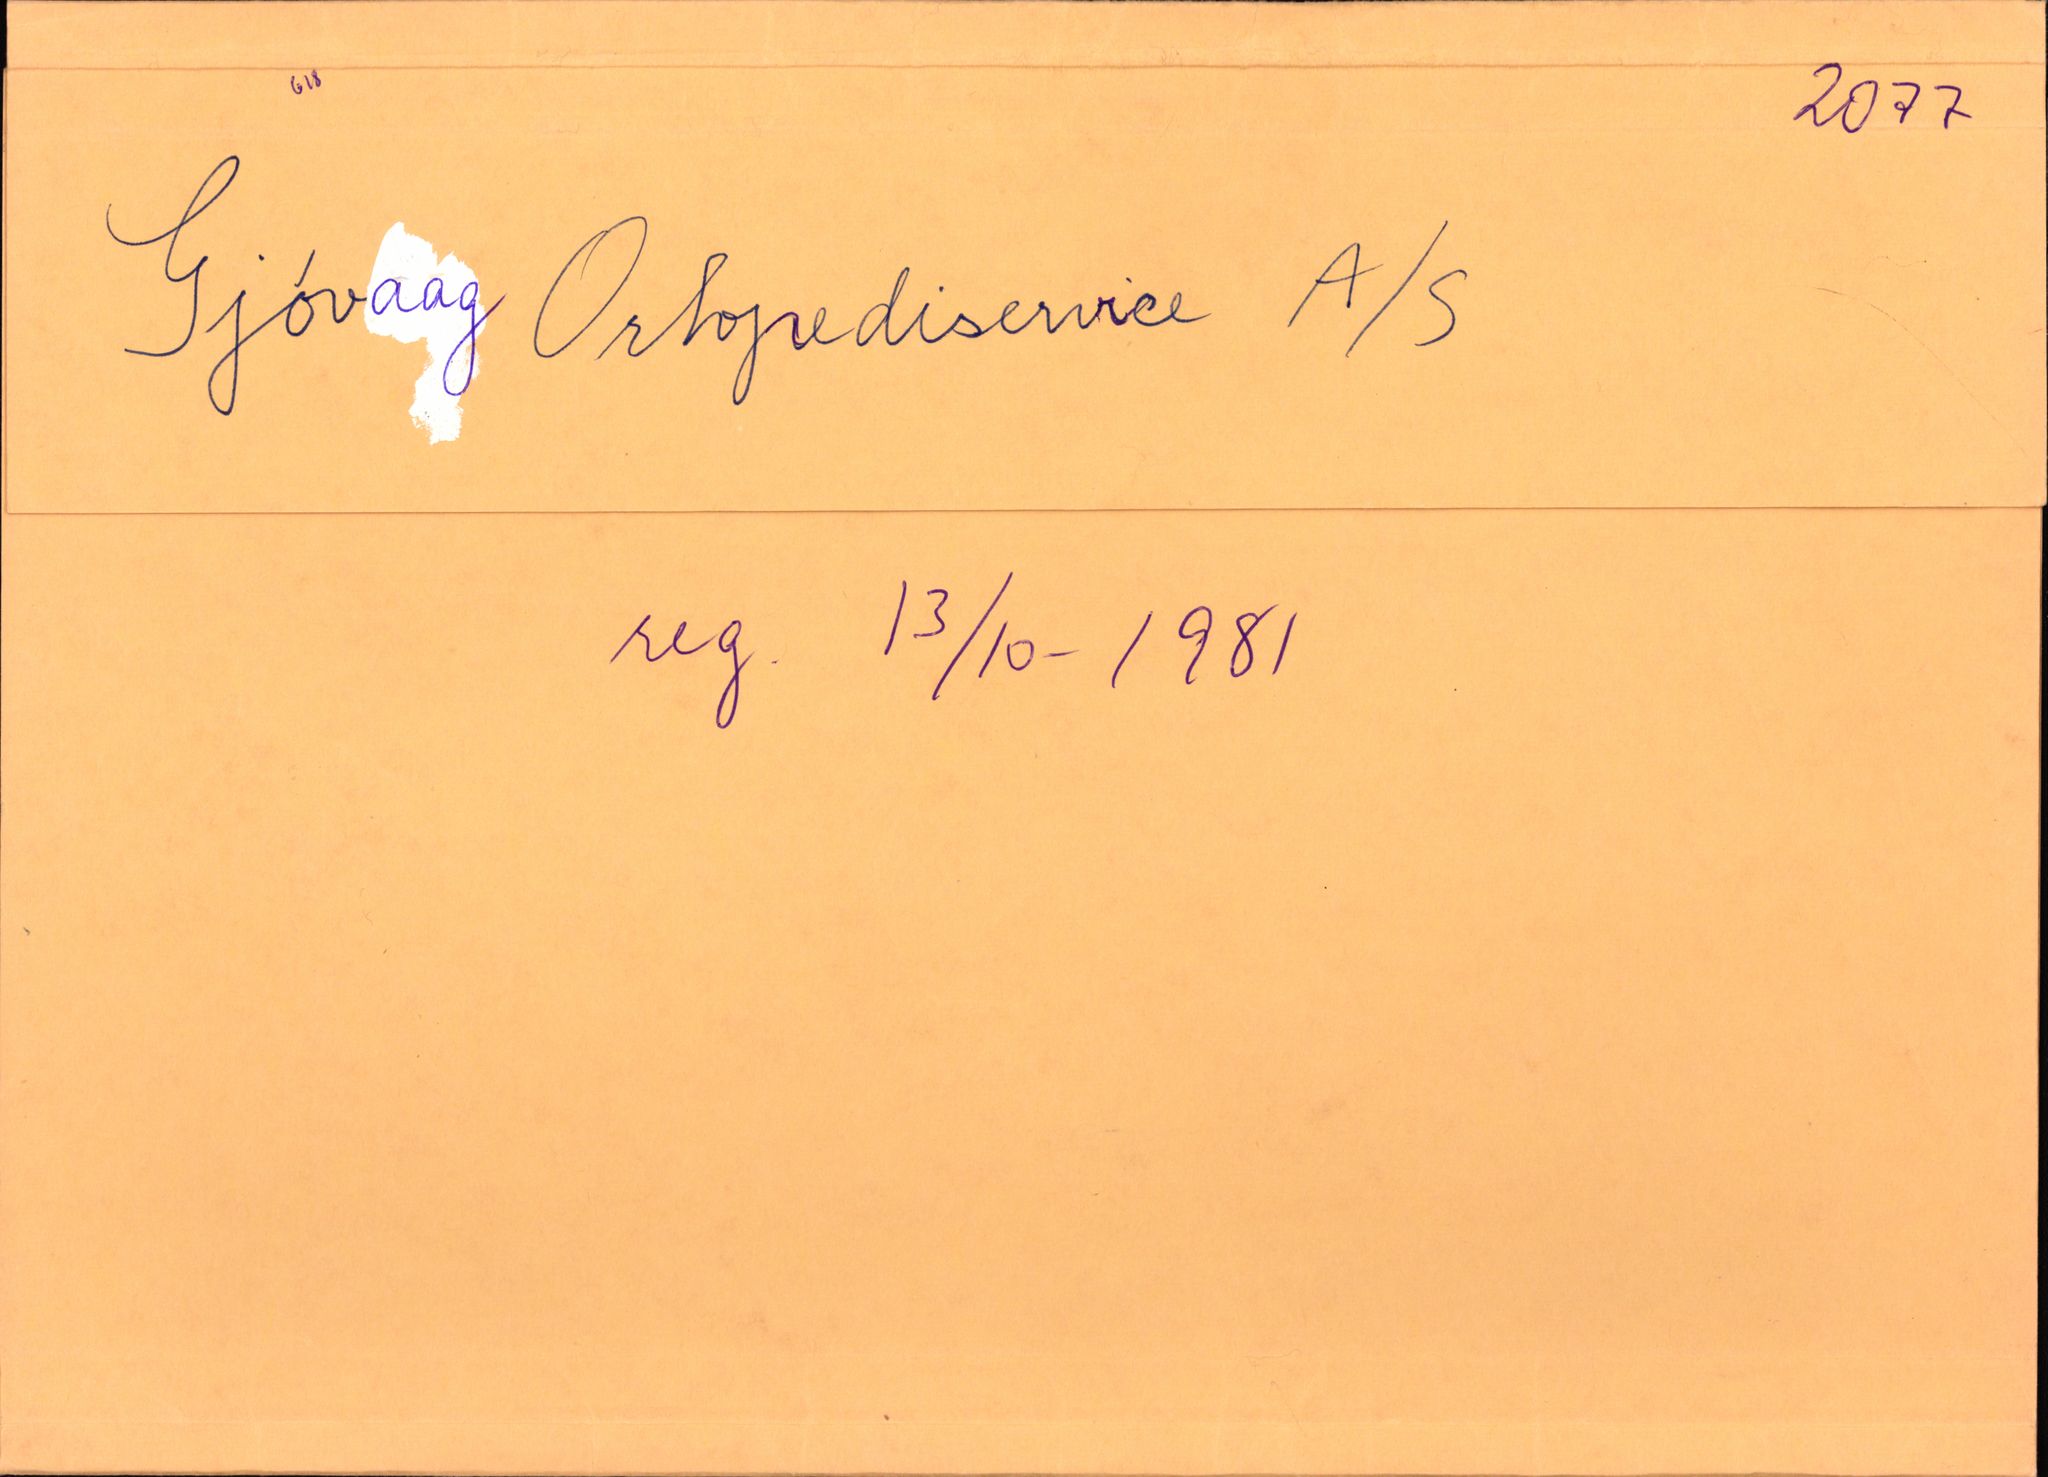 G18
2077
Gjóvaag Ortopediservice A/S
reg. 13/10-1981